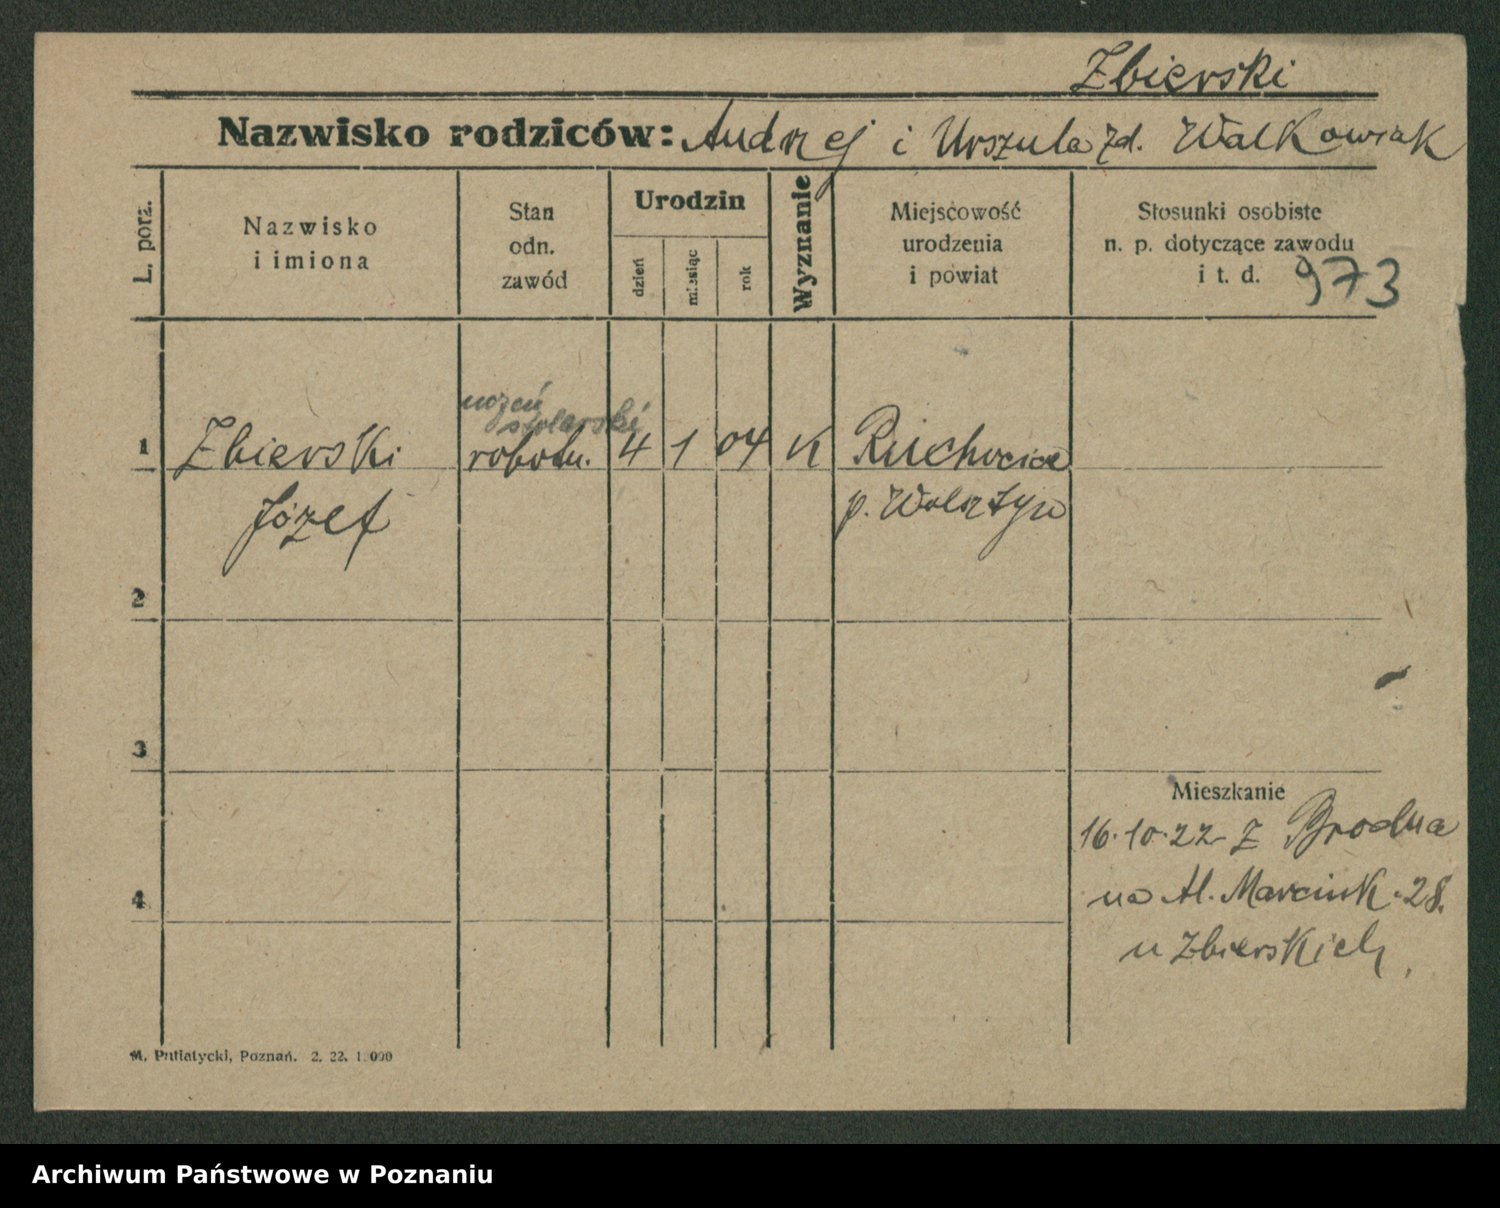 Zbierski
Nazwisko rodziców: Andrzej i Urszula zd. Walkowiak
L. porz.
Nazwisko
i imiona
Stan
odn.
zawód
Urodzin
dzień
miesiąc
rok
Wyznanie
Miejscowość
urodzenia
i powiat
Stosunki osobiste
n. p. dotyczące zawodu
i t. d.
973
uczeń
stolarski
1 Zbierski robotn. 4 1 04 K Ruchocice
Józef p. Wolsztyn
2
3
Mieszkanie
16.10.22 z Brodna
4
na Al. Marcink. 28.
u Zbierskich,
M. Putiatycki, Poznań. 2. 22. 1.000
Archiwum Państwowe w Poznaniu